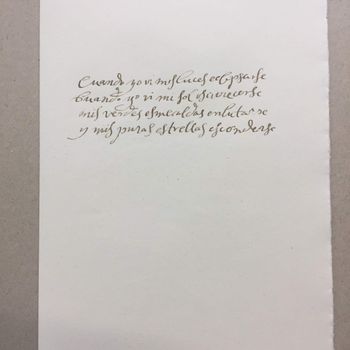 Cuando yo vi mis luces eclipsarse
Cuando yo vi mi sol escurecerse
mis verdes esmeraldas enlutarse
y mis puras estrellas esconderse